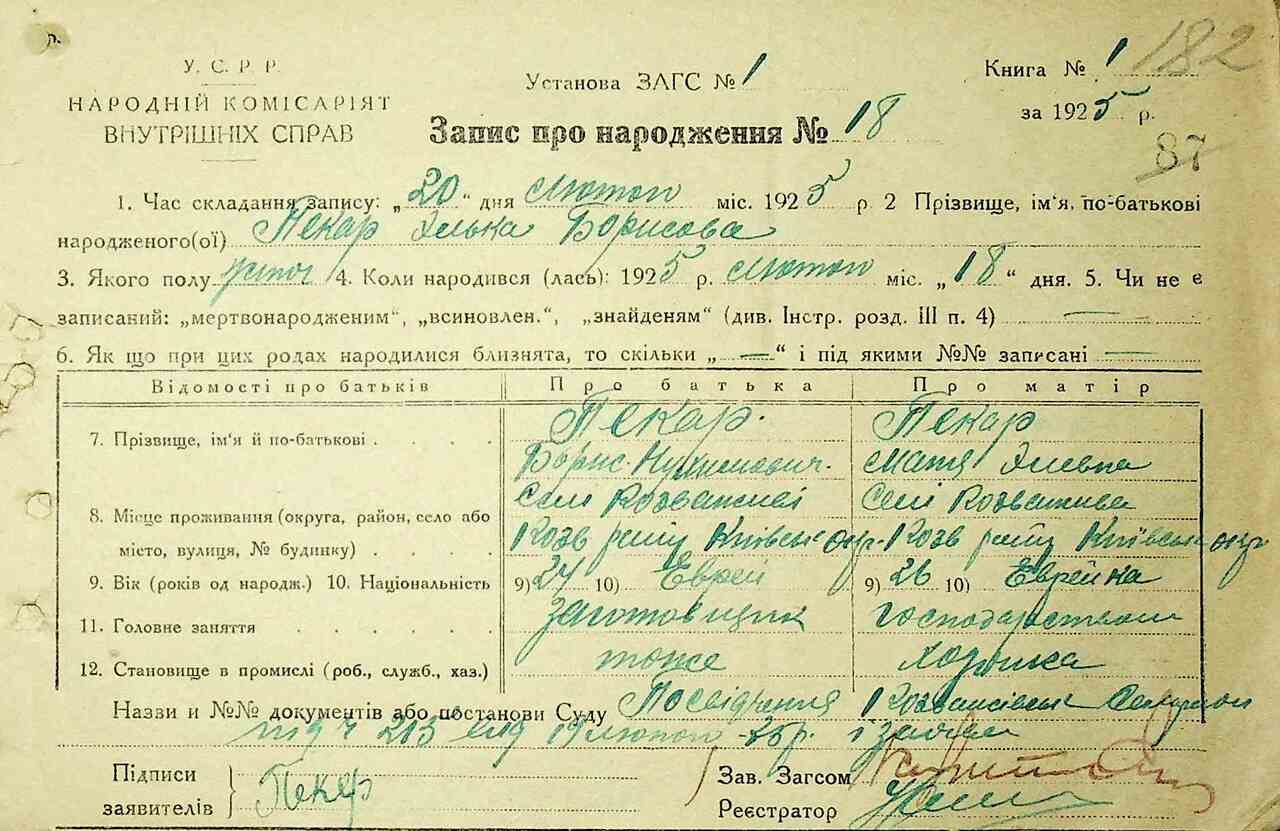 У. С. Р. Р.
НАРОДНІЙ КОМІСАРІЯТ
ВНУТРІШНІХ СПРАВ
Установа ЗАГС № 1
Книга № 1 182
за 1925 р.
87
Запис про народження № 18
1. Час складання запису: „20“ дня лютого міс. 1925 р. 2 Прізвище, ім'я, по-батькові
народженого(ої) Пекар Элька Борисова
3. Якого полу 4. Коли народився (лась): 1925 р. лютого міс. „18“ дня. 5. Чи не є
записаний: „мертвонародженим“, „всиновлен.“, „знайденям“ (див. Інстр. розд. III п. 4) —
6. Як що при цих родах народилися близнята, то скільки „—“ і під якими №№ записані —
Відомості про батьків Про батька Про матір
7. Прізвище, ім'я й по-батькові Пекар. Пекар
Борис
8. Місце проживання (округа, район, село або
місто, вулиця, № будинку)
9. Вік (років од народж.) 10. Національність 9) 27 10) Еврей 9) 26 10) Еврейка
11. Головне заняття заготовщик
12. Становище в промислі (роб., служб., хаз.) тоже
Назви и №№ документів або постанови Суду Посвідчення
215 від 19 лютого 25 р.
Підписи
заявителів Пекар
Зав. Загсом
Реєстратор